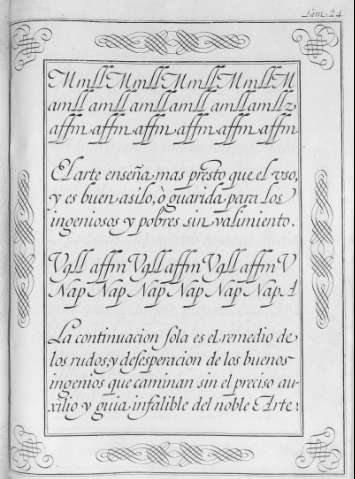 Lam. 24
MmllMmllMmllMmllM
amll amll amll amll amll amll z
affm affm affm affm affm affm
El arte enseña mas presto que el vso,
y es buen asilo, ò guarida para los
ingeniosos y pobres sin valimiento.
Vgll affm Vgll affm Vgll affm V
Nap Nap Nap Nap Nap Nap 1
La continuacion sola es el remedio de
los rudos, y desesperacion de los buenos
ingenios que caminan sin el preciso au-
xilio y guia infalible del noble Arte.